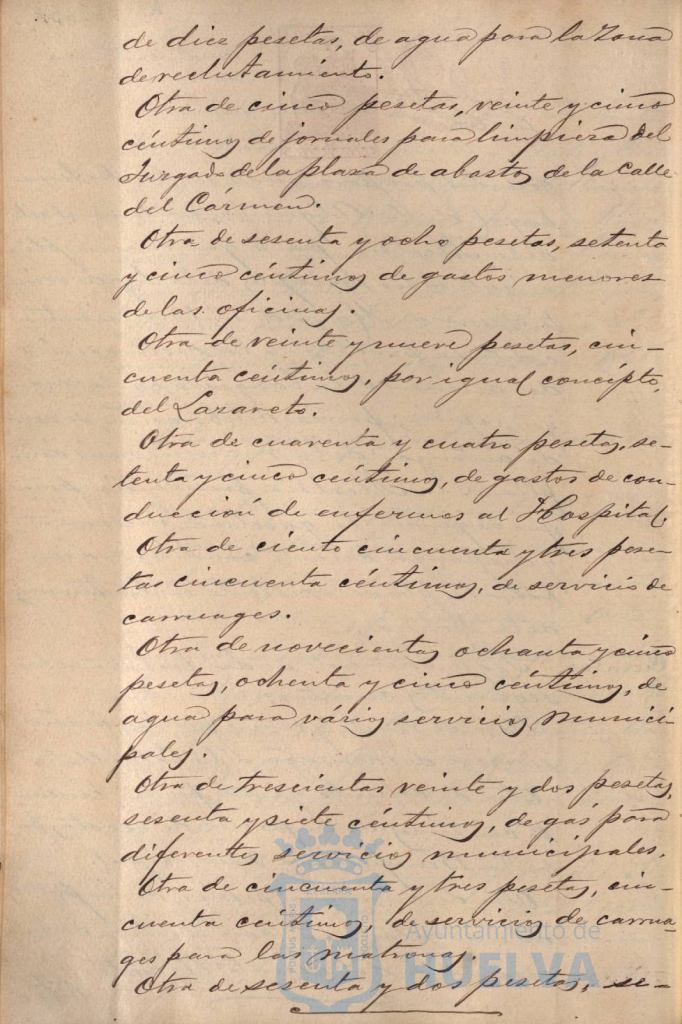 de diez pesetas, de agua para la Zona
de reclutamiento.
Otra de cinco pesetas, veinte y cinco
céntimos de jornales para limpieza del
Juzgado de la plaza de abastos, de la calle
del Cármen.
Otra de sesenta y ocho pesetas, setenta
y cinco céntimos de gastos menores
de las oficinas.
Otra de veinte y nueve pesetas, cin-
cuenta céntimos, por igual concépto,
del Lazareto.
Otra de cuarenta y cuatro pesetas, se-
tenta y cinco céntimos, de gastos de con-
ducción de enfermos al Hospital.
Otra de ciento cincuenta y tres pese-
tas cincuenta céntimos, de servicio de
carruages.
Otra de novecientas ochenta y cinco
pesetas, ochenta y cinco céntimos, de
agua para vários servicios munici-
pales.
Otra de trescientas veinte y dos pesetas,
sesenta y siete céntimos, de gás para
diferentes servicios municipales.
Otra de cincuenta y tres pesetas, cin-
cuenta céntimos, de servicios de carrua-
ges para las matronas.
Otra de sesenta y dos pesetas, se-
Ayuntamiento de
HUELVA